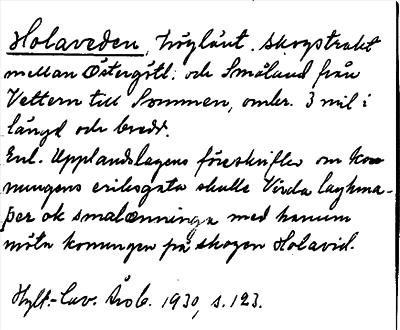 Holaveden, högländt. skogstrakt
mellan Östergötl. och Småland från
Vettern till Sommen, omkr. 3 mil i
längd och bredd.
Enl. Upplandslagens föreskrifter om ko-
nungens eriksgata skulle Virda laghma-
þer ok smalænninga med hanum
möta konungen på skogen Holavid.
Hylt.-Cav. Årsb. 1930, s. 123.